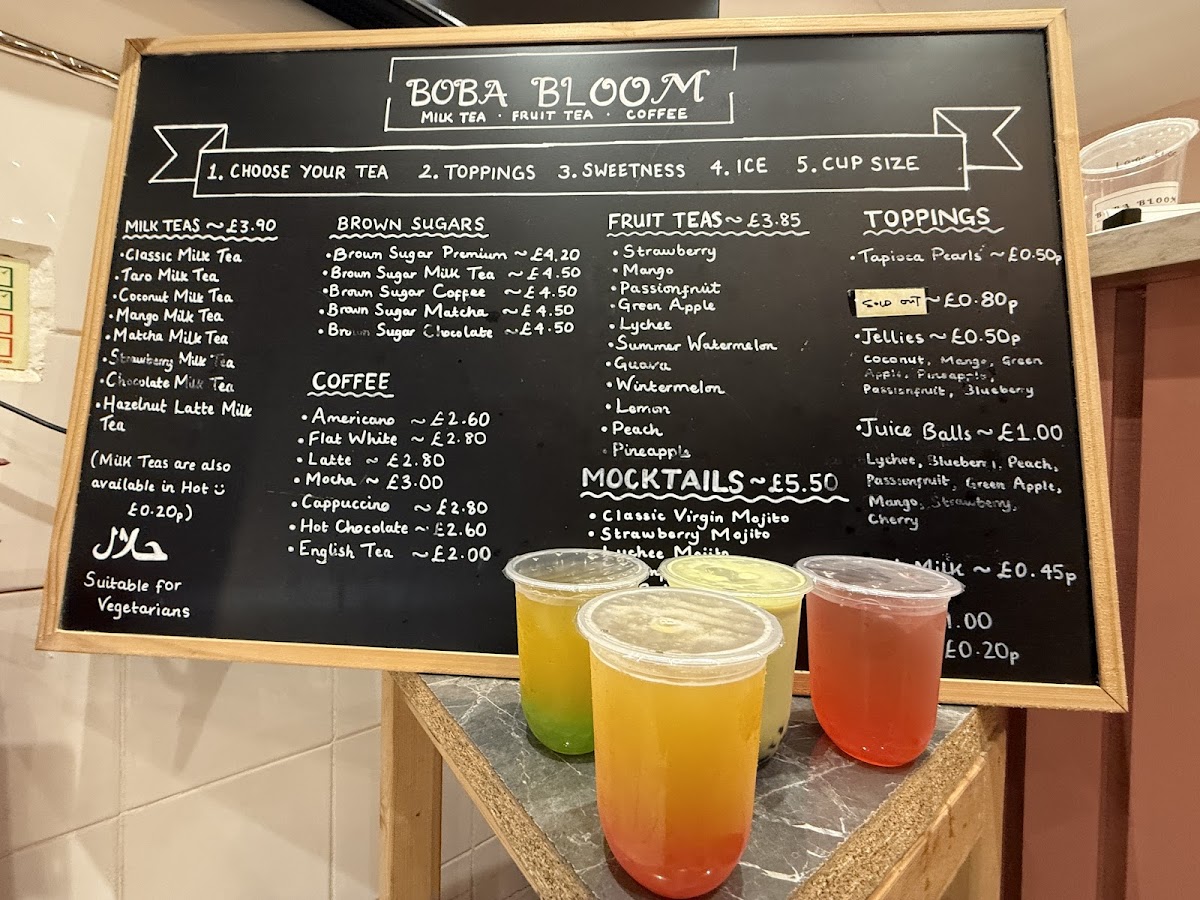 BOBA BLOOM
MILK TEA · FRUIT TEA · COFFEE
1. CHOOSE YOUR TEA 2. TOPPINGS 3. SWEETNESS 4. ICE 5. CUP SIZE
MILK TEAS ~ £3.90
• Classic Milk Tea
• Taro Milk Tea
• Coconut Milk Tea
• Mango Milk Tea
• Matcha Milk Tea
• Strawberry Milk Tea
• Chocolate Milk Tea
• Hazelnut Latte Milk
Tea
(Milk Teas are also
available in Hot ☺
£0.20p)
حلال
Suitable for
Vegetarians
BROWN SUGARS
• Brown Sugar Premium ~ £4.20
• Brown Sugar Milk Tea ~ £4.50
• Brown Sugar Coffee ~ £4.50
• Brown Sugar Matcha ~ £4.50
• Brown Sugar Chocolate ~ £4.50
COFFEE
• Americano ~ £2.60
• Flat White ~ £2.80
• Latte ~ £2.80
• Mocha ~ £3.00
• Cappuccino ~ £2.80
• Hot Chocolate ~ £2.60
• English Tea ~ £2.00
FRUIT TEAS ~ £3.85
• Strawberry
• Mango
• Passionfruit
• Green Apple
• Lychee
• Summer Watermelon
• Guava
• Wintermelon
• Lemon
• Peach
• Pineapple
MOCKTAILS ~ £5.50
• Classic Virgin Mojito
• Strawberry Mojito
Lychee Mojito
TOPPINGS
• Tapioca Pearls ~ £0.50p
SOLD OUT ~ £0.80p
• Jellies ~ £0.50p
Coconut, Mango, Green
Apple, Pineapple,
Passionfruit, Blueberry
• Juice Balls ~ £1.00
Lychee, Blueberri, Peach,
Passionfruit, Green Apple,
Mango, Strawberry,
Cherry
Milk ~ £0.45p
1.00
£0.20p
BOBA BLOOM